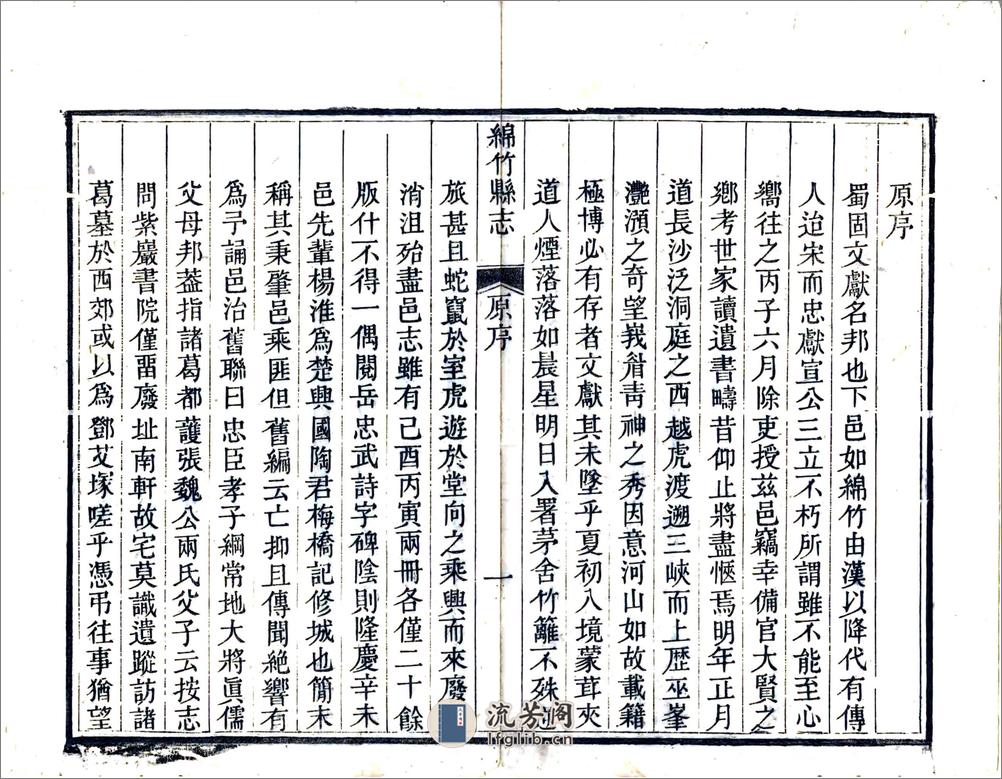 原序
蜀固文獻名邦也下邑如綿竹由漢以降代有傳
人迨宋而忠獻宣公三立不朽所謂雖不能至心
嚮往之丙子六月除吏授茲邑竊幸備官大賢之
鄉考世家讀遺書疇昔仰止將盡愜焉明年正月
道長沙泛洞庭之西越虎渡遡三峽而上歷巫峯
灔澦之奇望峩眉靑神之秀因意河山如故載籍
極博必有存者文獻其未墜乎夏初入境蒙茸夾
道人煙落落如晨星明日入署茅舍竹籬不殊
綿竹縣志
原序
一
旅甚且蛇竄於室虎遊於堂向之乘興而來廢
消沮殆盡邑志雖有己酉丙寅兩冊各僅二十餘
版什不得一偶閱岳忠武詩字碑陰則隆慶辛未
邑先輩楊淮爲楚興國陶君梅橋記修城也簡末
稱其秉肇邑乘匪但舊編云亡抑且傳聞絕響有
爲予誦邑治舊聯曰忠臣孝子綱常地大將眞儒
父母邦葢指諸葛都護張魏公兩氏父子云按志
問紫巖書院僅畱廢址南軒故宅莫識遺蹤訪諸
葛墓於西郊或以爲鄧艾塚嗟乎憑弔往事猶望
流芳阁
lfglib.cn